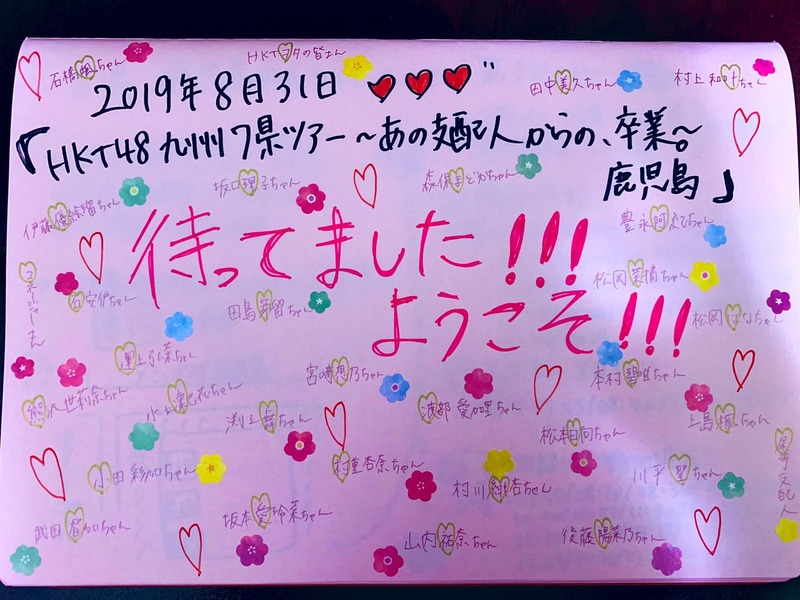 石橋颯ちゃん
HKTヲタの皆さん
2019年8月31日
田中美久ちゃん
村上和叶ちゃん
『HKT48 九州7県ツアー～あの支配人からの、卒業。
鹿児島』
坂口理子ちゃん
森保まどかちゃん
伊藤優絵瑠ちゃん
豊永阿紀ちゃん
待ってました!!!
ようこそ!!!
マネージャーさん
石安伊ちゃん
田島芽瑠ちゃん
松岡菜摘ちゃん
松岡はなちゃん
運上弘菜ちゃん
宮﨑想乃ちゃん
本村碧唯ちゃん
熊沢世莉奈ちゃん
水上凜巳花ちゃん
渕上舞ちゃん
渡部愛加里ちゃん
松本日向ちゃん
上島楓ちゃん
小田彩加ちゃん
村重杏奈ちゃん
村川緋杏ちゃん
川平聖ちゃん
武田智加ちゃん
坂本愛玲菜ちゃん
山内祐奈ちゃん
後藤陽菜乃ちゃん
支配人